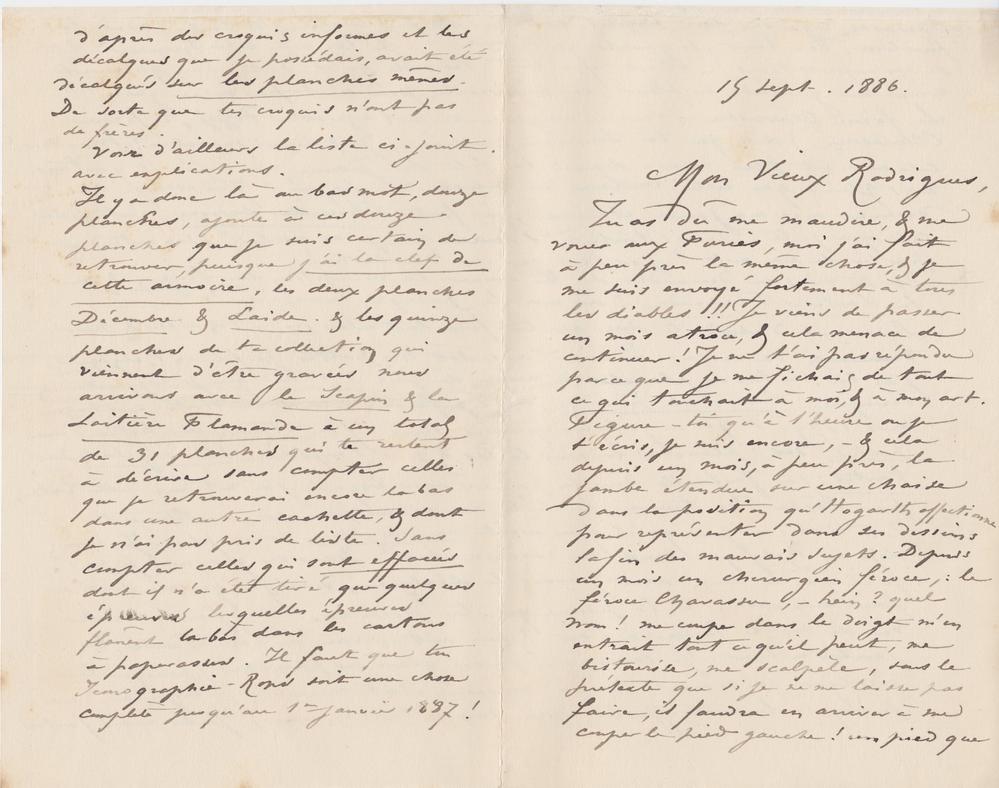 d'après des croquis informes et les
décalques que je possédais, avait été
décalqués sur les planches mêmes.
De sorte que tes croquis n'ont pas
de frères.
Voir d'ailleurs la liste ci-jointe.
avec explications.
Il y a donc là au bas mot, douze
planches, ajoute à ces douze
planches que je suis certain de
retrouver, puisque j'ai la clef de
cette armoire, les deux planches
Décembre & Laide. & les quinze
planches de ta collection qui
viennent d'être gravées nous
arrivons avec le Scapin & la
Laitière Flamande à un total
de 31 planches qui te restent
à décrire sans compter celles
que je retrouverai encore là bas
dans une autre cachette, & dont
je n'ai pas pris de liste. Sans
compter celles qui sont effacées
dont il n'a été tiré que quelques
épreuves lesquelles épreuves
flânent là bas dans les cartons
à paperasses. Il faut que ton
Iconographie-Rops soit une chose
complète jusqu'au 1er Janvier 1887!
15 sept. 1886.
Mon Vieux Rodrigues,
Tu as dû me maudire, & me
vouer aux Furies, moi j'ai fait
à peu près la même chose, & je
me suis envoyé fortement à tous
les diables!!! Je viens de passer
un mois atroce, & cela menace de
continuer! Je ne t'ai pas répondu
parce que je me fichais de tout
ce qui touchait à moi, & à mon art.
Figure-toi qu'à l'heure où je
t'écris, je suis encore, - & cela
depuis un mois, à peu près, la
jambe étendue sur une chaise
dans la position qu'Hogarth affectionne
pour représenter dans ses dessins
la fin des mauvais sujets. Depuis
un mois un chirurgien féroce,: le
féroce Chavasse, - hein? quel
nom! me coupe dans le doigt m'en
entrait tout ce qu'il peut, me
bistourise, me scalpèle, sous le
prétexte que si je ne me laisse pas
faire, il faudra en arriver à me
couper le pied gauche! un pied que